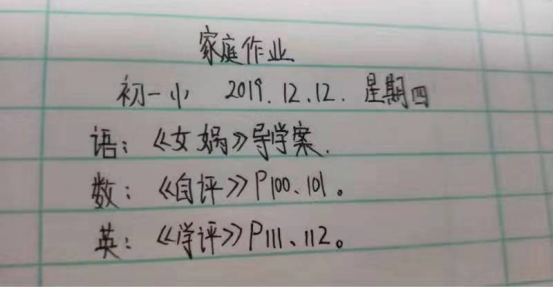 家庭作业
初一小 2019.12.12. 星期四
语：《女娲》导学案.
数：《自评》P100、101。
英：《学评》P111、112。